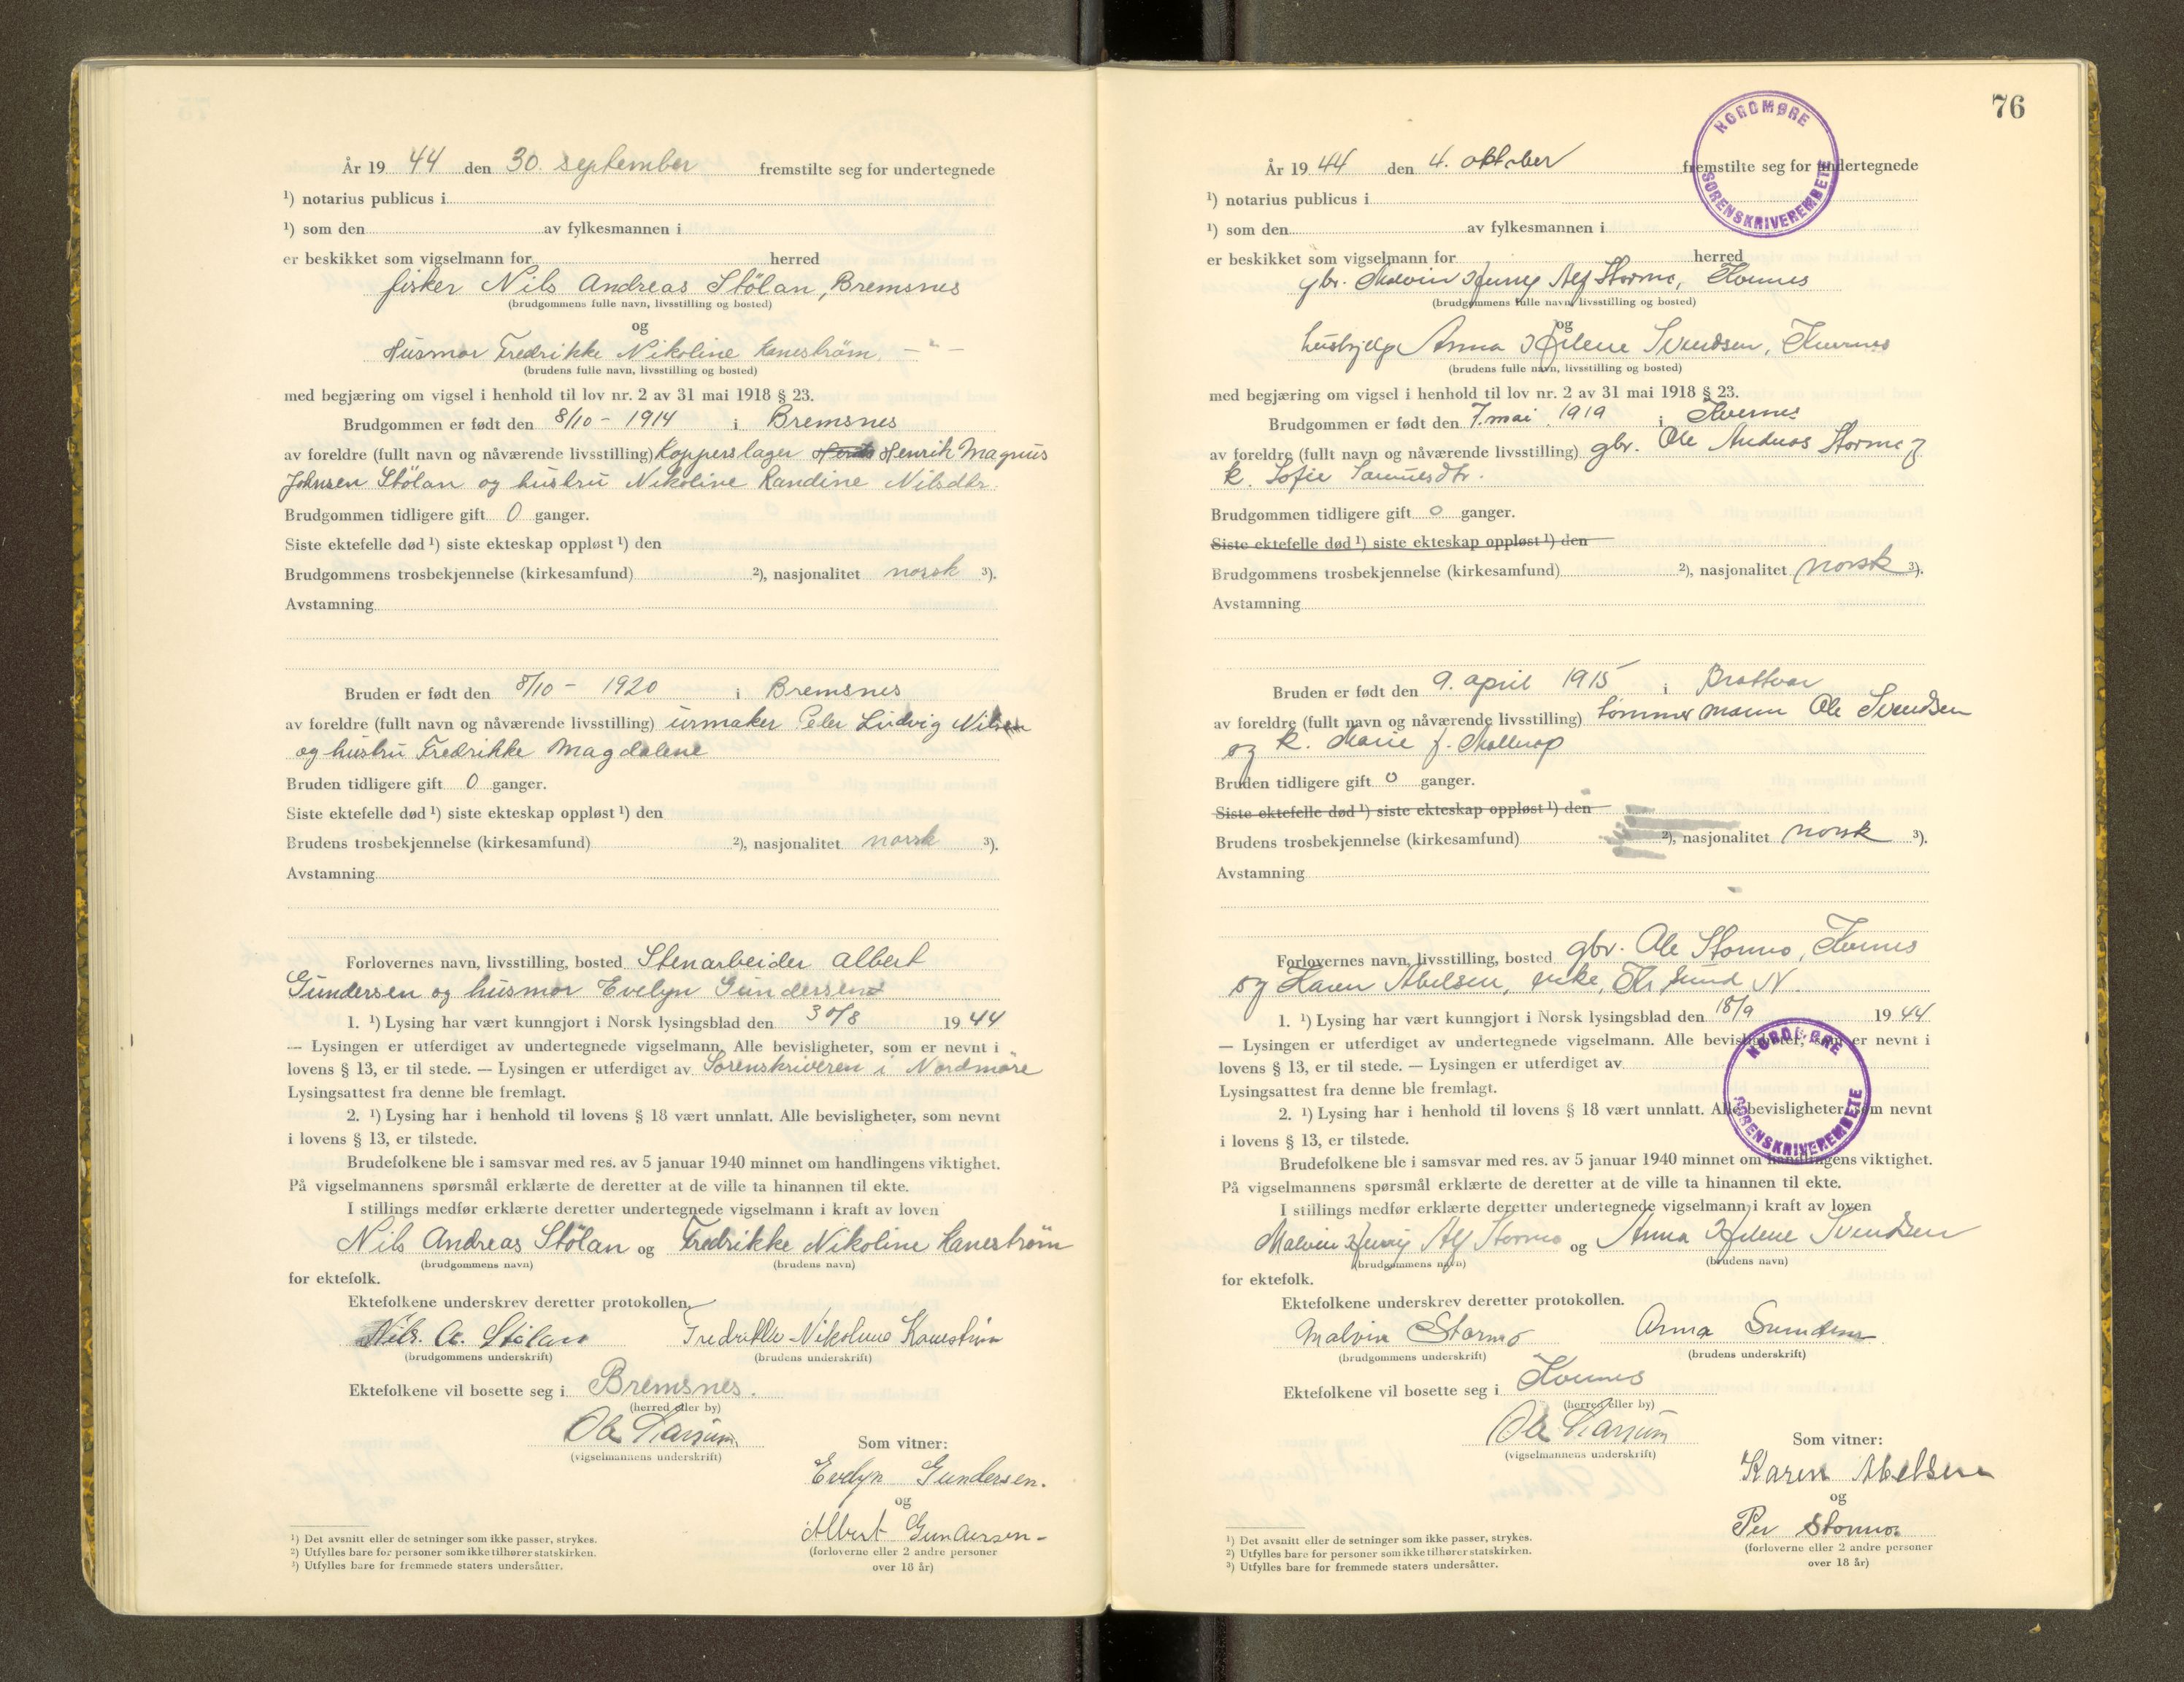 År 19 44 den 30. september fremstilte seg for undertegnede
¹) notarius publicus i
¹) som den av fylkesmannen i
er beskikket som vigselmann for herred
fisker Nils Andreas Stölan, Bremsnes
(brudgommens fulle navn, livsstilling og bosted)
og
Husmor Fredrikke Nikoline Kanestrøm, — " —
(brudens fulle navn, livsstilling og bosted)
med begjæring om vigsel i henhold til lov nr. 2 av 31 mai 1918 § 23.
Brudgommen er født den 8/10 - 1914 i Bremsnes
av foreldre (fullt navn og nåværende livsstilling) Kopperslager Henrik Magnus
Johnsen Stölan og hustru Nikoline Randine Nilsdtr.
Brudgommen tidligere gift 0 ganger.
Siste ektefelle død ¹) siste ekteskap oppløst ¹) den
Brudgommens trosbekjennelse (kirkesamfund) ²), nasjonalitet norsk ³).
Avstamning
Bruden er født den 8/10 - 1920 i Bremsnes
av foreldre (fullt navn og nåværende livsstilling) urmaker Peter Ludvig Nilsen
og hustru Fredrikke Magdalene
Bruden tidligere gift 0 ganger.
Siste ektefelle død ¹) siste ekteskap oppløst ¹) den
Brudens trosbekjennelse (kirkesamfund) ²), nasjonalitet norsk ³).
Avstamning
Forlovernes navn, livsstilling, bosted Stenarbeider Albert
Gundersen og husmor Evelyn Gundersen
1. ¹) Lysing har vært kunngjort i Norsk lysingsblad den 30/8 19 44
— Lysingen er utferdiget av undertegnede vigselmann. Alle bevisligheter, som er nevnt i
lovens § 13, er til stede. — Lysingen er utferdiget av Sorenskriveren i Nordmøre
Lysingsattest fra denne ble fremlagt.
2. ¹) Lysing har i henhold til lovens § 18 vært unnlatt. Alle bevisligheter, som nevnt
i lovens § 13, er tilstede.
Brudefolkene ble i samsvar med res. av 5 januar 1940 minnet om handlingens viktighet.
På vigselmannens spørsmål erklærte de deretter at de ville ta hinannen til ekte.
I stillings medfør erklærte deretter undertegnede vigselmann i kraft av loven
Nils Andreas Stölan og Fredrikke Nikoline Kanestrøm
(brudgommens navn) (brudens navn)
for ektefolk.
Ektefolkene underskrev deretter protokollen.
Nils. A. Stölan Fredrikke Nikoline Kanestrøm
(brudgommens underskrift) (brudens underskrift)
Ektefolkene vil bosette seg i Bremsnes.
(herred eller by)
Ole
(vigselmannens underskrift)
Som vitner:
Evelyn Gundersen.
og
Albert Gundersen-
(forloverne eller 2 andre personer
over 18 år)
¹) Det avsnitt eller de setninger som ikke passer, strykes.
²) Utfylles bare for personer som ikke tilhører statskirken.
³) Utfylles bare for fremmede staters undersåtter.
76
NORDMØRE
SORENSKRIVEREMBETE
År 19 44 den 4. oktober fremstilte seg for undertegnede
¹) notarius publicus i
¹) som den av fylkesmannen i
er beskikket som vigselmann for herred
gbr. Malvin Henry Alf Stormo, Kvernes
(brudgommens fulle navn, livsstilling og bosted)
og
hushjelp Anna Helene Svendsen, Kvernes
(brudens fulle navn, livsstilling og bosted)
med begjæring om vigsel i henhold til lov nr. 2 av 31 mai 1918 § 23.
Brudgommen er født den 7. mai 1919 i Kvernes
av foreldre (fullt navn og nåværende livsstilling) gbr. Ole Andreas Stormo og
k. Sofie Samuelsdtr.
Brudgommen tidligere gift 0 ganger.
Siste ektefelle død ¹) siste ekteskap oppløst ¹) den
Brudgommens trosbekjennelse (kirkesamfund) ²), nasjonalitet norsk ³).
Avstamning
Bruden er født den 9. april 1915 i Brattvær
av foreldre (fullt navn og nåværende livsstilling) tømmermann Ole Svendsen
og k. Marie f. Møllerop
Bruden tidligere gift 0 ganger.
Siste ektefelle død ¹) siste ekteskap oppløst ¹) den
Brudens trosbekjennelse (kirkesamfund) ²), nasjonalitet norsk ³).
Avstamning
Forlovernes navn, livsstilling, bosted gbr. Ole Stormo, Kvernes
og Karen Abelsen, enke, Kr.sund N.
1. ¹) Lysing har vært kunngjort i Norsk lysingsblad den 18/9 19 44
— Lysingen er utferdiget av undertegnede vigselmann. Alle bevisligheter, som er nevnt i
lovens § 13, er til stede. — Lysingen er utferdiget av
Lysingsattest fra denne ble fremlagt.
NORDMØRE
SORENSKRIVEREMBETE
2. ¹) Lysing har i henhold til lovens § 18 vært unnlatt. Alle bevisligheter, som nevnt
i lovens § 13, er tilstede.
Brudefolkene ble i samsvar med res. av 5 januar 1940 minnet om handlingens viktighet.
På vigselmannens spørsmål erklærte de deretter at de ville ta hinannen til ekte.
I stillings medfør erklærte deretter undertegnede vigselmann i kraft av loven
Malvin Henry Alf Stormo og Anna Helene Svendsen
(brudgommens navn) (brudens navn)
for ektefolk.
Ektefolkene underskrev deretter protokollen.
Malvin Stormo Anna Svendsen
(brudgommens underskrift) (brudens underskrift)
Ektefolkene vil bosette seg i Kvernes
(herred eller by)
Ole
(vigselmannens underskrift)
Som vitner:
Karen Abelsen
og
Per Stormo
(forloverne eller 2 andre personer
over 18 år)
¹) Det avsnitt eller de setninger som ikke passer, strykes.
²) Utfylles bare for personer som ikke tilhører statskirken.
³) Utfylles bare for fremmede staters undersåtter.